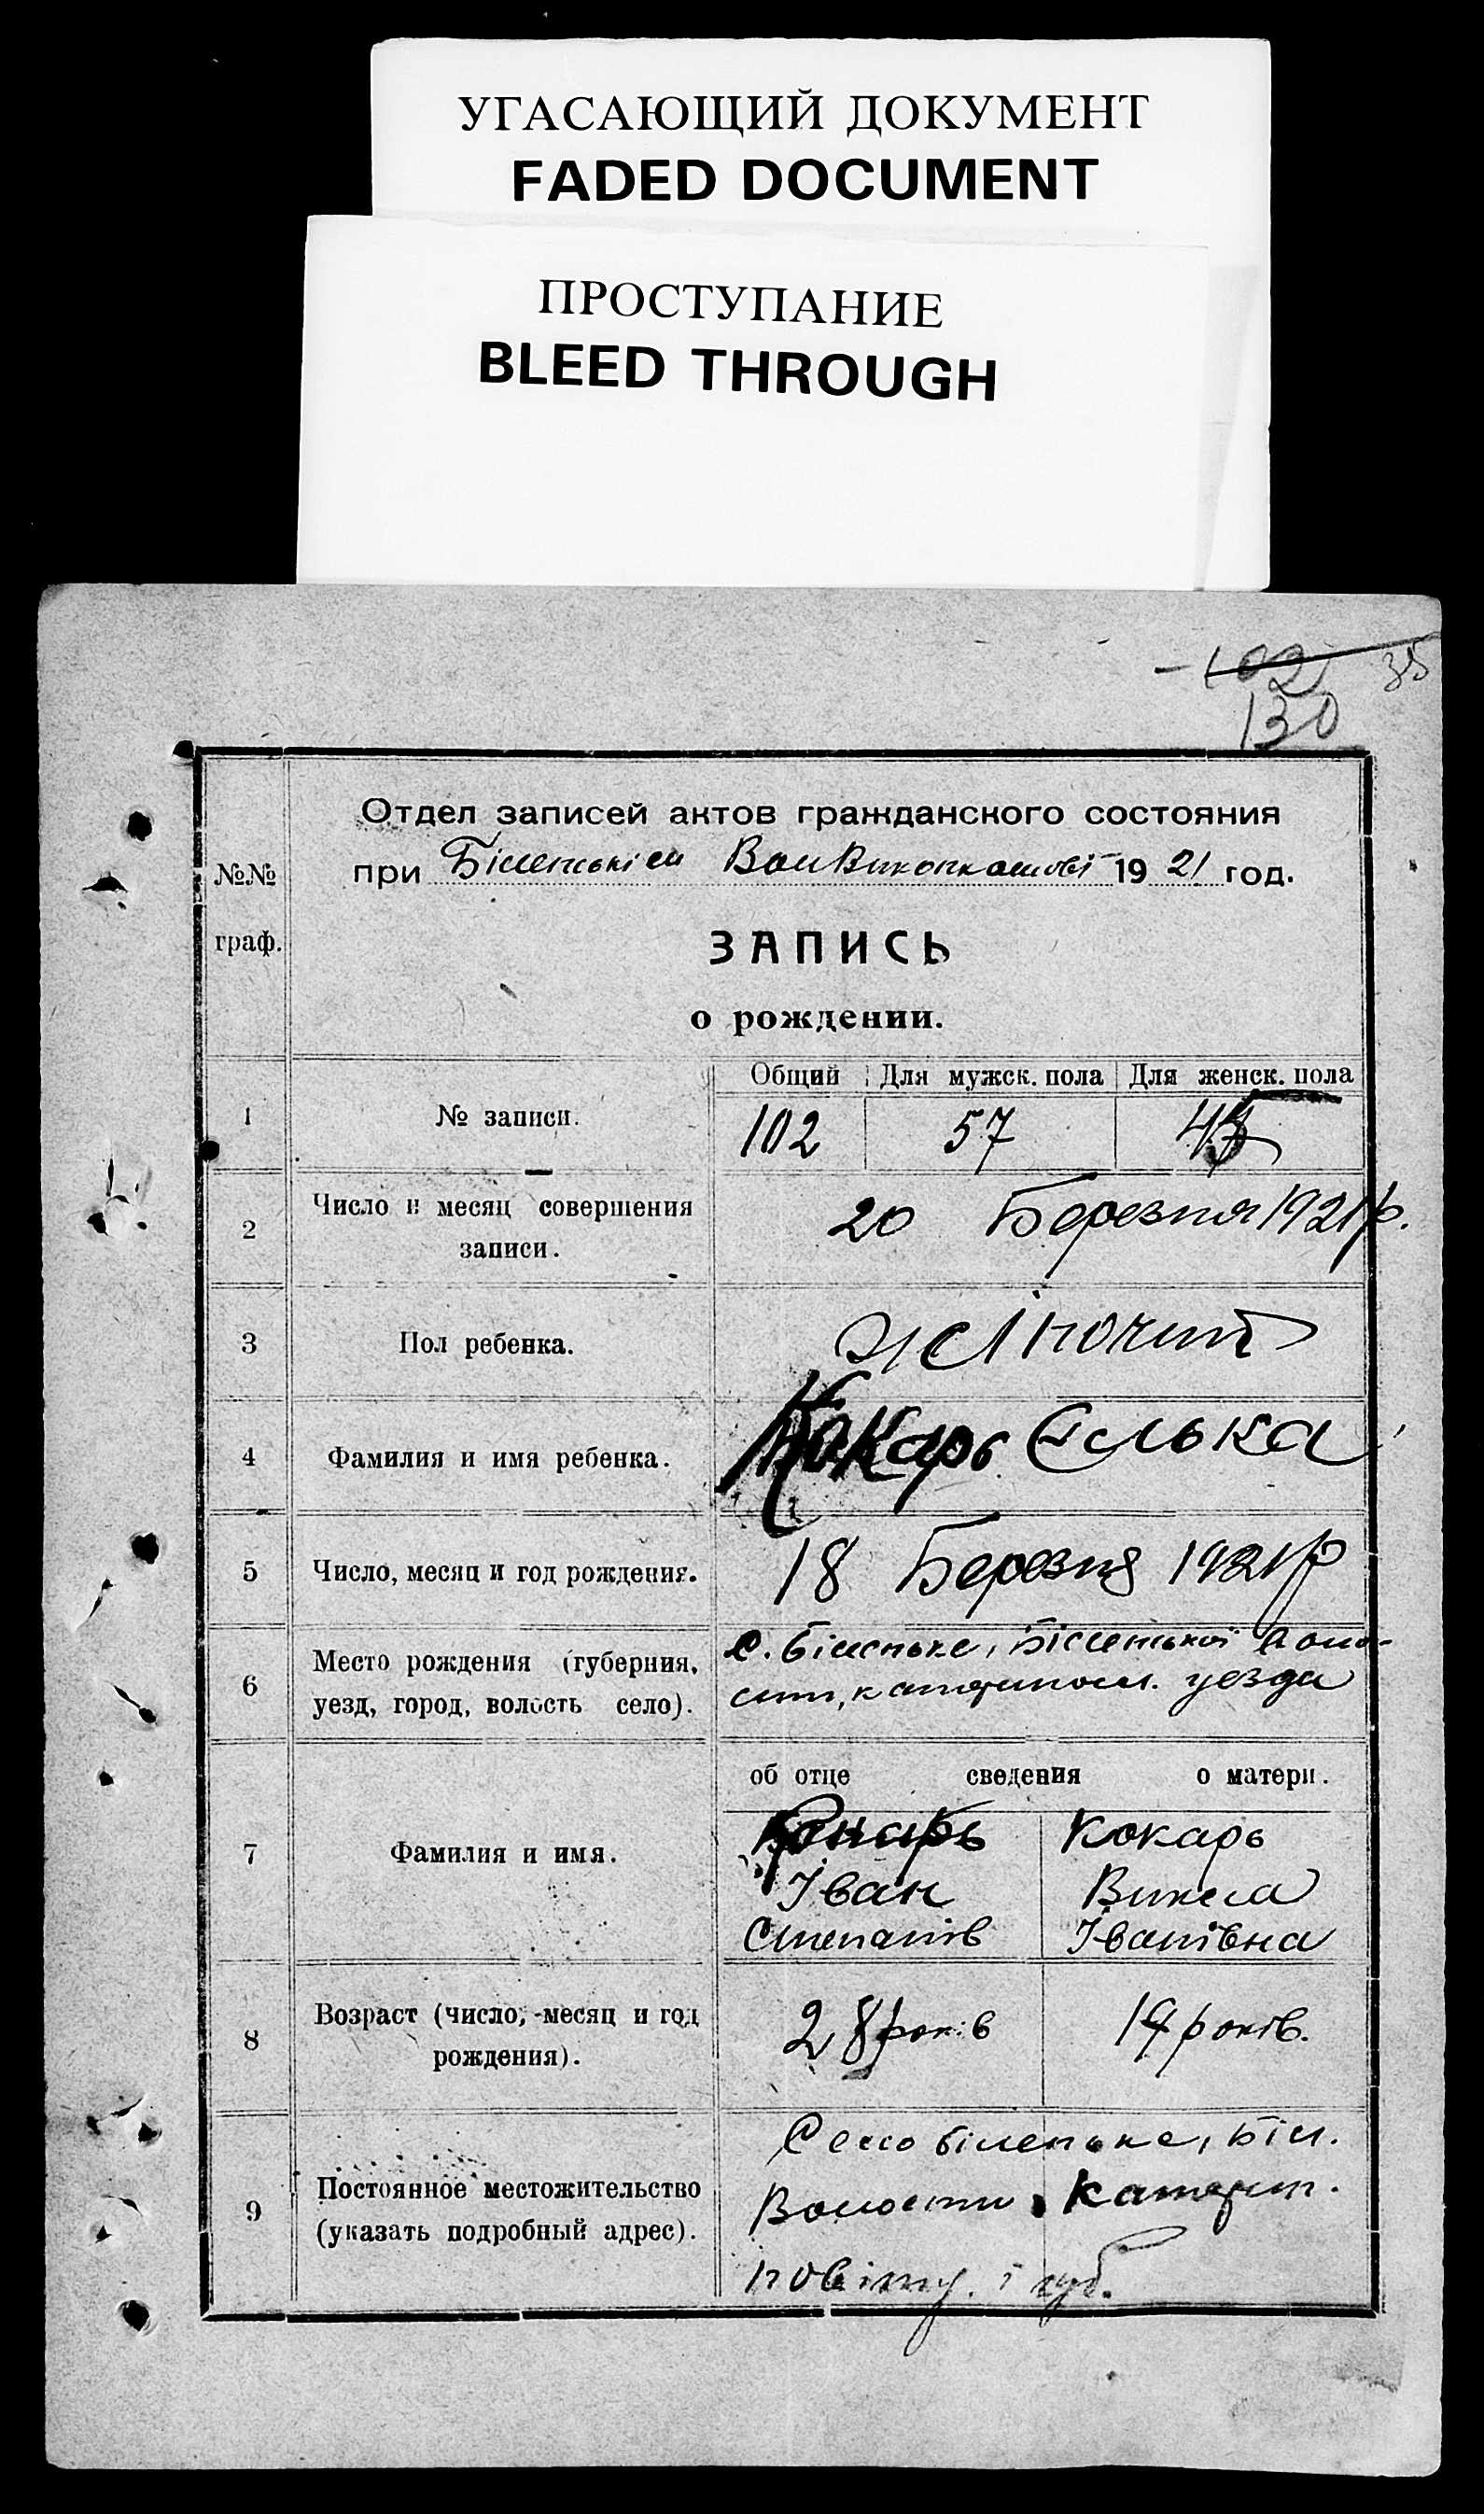 УГАСАЮЩИЙ ДОКУМЕНТ
FADED DOCUMENT
ПРОСТУПАНИЕ
BLEED THROUGH
102 35
130
Отдел записей актов гражданского состояния
№№
при Біленькій 1921 год.
граф.
ЗАПИСЬ
о рождении.
Общий Для мужск. пола Для женск. пола
1 № записи. 102 57
2 Число и месяц совершения 20 Березня 1921 р.
записи.
3 Пол ребенка.
4 Фамилия и имя ребенка. Кокарь
5 Число, месяц и год рождения. 18 Березня 1921 р
6 Место рождения (губерния, с. Біленьке, Біленької
уезд, город, волость село). уезда
об отце сведения о матери.
7 Фамилия и имя. Кокарь Кокарь
Іван
Степанів Іванівна
8 Возраст (число, месяц и год 28 років років.
рождения).
9 Село Біленьке, Біл.
Постоянное местожительство Волости Катерин.
(указать подробный адрес).
повіту. і губ.